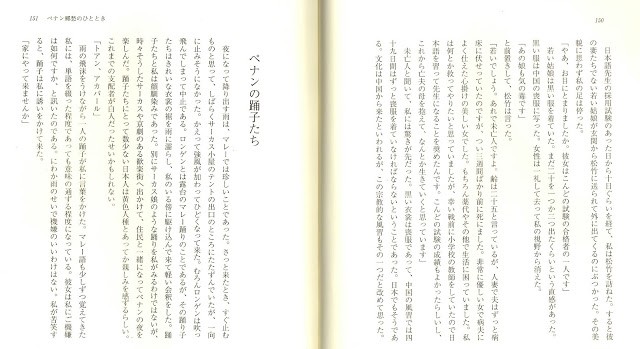 150
日本語先生の採用試験のあった日から十日ぐらいを経て、私は松竹を訪ねた。すると彼
の妻たちでない若い姑娘が玄関から松竹に送られて外に出てくるのにぶつかった。その美
貌に思わず私の足は停った。
「やあ、お目にとまりましたか。彼女はこんどの試験の合格者の一人です」
若い姑娘は黒い服を着ていた。まだ二十を一つか二つ出たくらいという直感があった。
黒い服は中国の喪服に写った。女性は一礼して去って私の視野から消えた。
「あの娘も気の毒です」
と前置きして、松竹は言った。
「おいでしょう。あれで未亡人ですよ。齢は二十五と言っているが、人妻で夫はずっと病
床に伏せっていたのですが、つい一週間ばかり前に死にました。非常に優しい女で病夫に
よく仕え心掛けの美しい女でした。もちろん薬代やその他で生活に困っていました。私
は何とか救ってやりたいと思っていましたが、幸い戦前に小学校の教師をしていたので日
本語を習って先生になることを奨めたんです。こんどの試験の成績もよかったらしいし、
これから亡夫の母を抱えて、なんとか生きていくと思っています」
未亡人と聞いて、私には驚きが先だった。黒い衣裳は喪服であって、中国の風習では四
十九日間はずっと喪服を着ていなければならないということであった。日本でもそうであ
る。文化は中国から来たといわれるが、この宗教的な風習もその一つだと改めて思った。
151 ペナン郷愁のひととき
ペナンの踊子たち
夜になって降り出す雨は、マレーでは珍しいことであった。さっと来たとき、すぐ止む
ものと思って、しばらくサーカス小屋のテントの出口のところにたたずんでいたが、一向
に止みそうになかった。かえって強風が加わってひどくなって来た。むろんロンゲンは吹っ
飛んでしまって中止である。ロンゲンとは露台のマレー踊りのことであるが、その踊り子
たちはきれいな衣裳の裾を雨に濡らし、私のいる傍に駆け込んで来て軽い会釈をした。踊
子たちと私は顔馴染みであった。別にサーカス娘のような踊りを私がみるわけではないが、
時々そうしたサーカスや京劇のある歓楽街へ出かけて、住民と一緒になってペナンの夜を
楽しんだ。踊子たちにとって数少ない日本人は黄色人種とあってか親しみを感ずるらしい。
これまでの支配者が白人だったせいかもしれない。
「トアン、アカバール」
雨の飛沫をうけながら一人の踊子が私に言葉をかけた。マレー語も少しずつ覚えてきた
私には、単語を綴った程度であっても意味の通ずる程度になっている。彼女は私にご機嫌
は如何ですか、と訊いたのである。にわか雨のせいで機嫌のいいわけはない。私が苦笑す
ると、踊子は私に誘いをかけて来た。
「家にやって来ませんか」